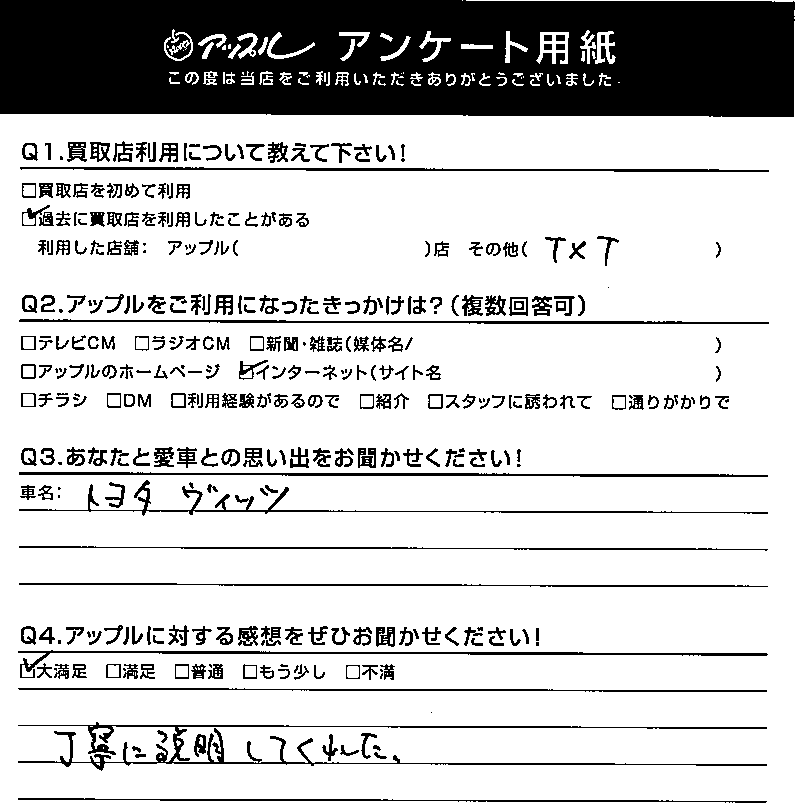 アップル アンケート用紙
この度は当店をご利用いただきありがとうございました.
Q1.買取店利用について教えて下さい!
□買取店を初めて利用
☑過去に買取店を利用したことがある
利用した店舗: アップル( )店 その他( TXT )
Q2.アップルをご利用になったきっかけは?(複数回答可)
□テレビCM □ラジオCM □新聞・雑誌(媒体名/ )
□アップルのホームページ ☑インターネット(サイト名 )
□チラシ □DM □利用経験があるので □紹介 □スタッフに誘われて □通りがかりで
Q3.あなたと愛車との思い出をお聞かせください!
車名: トヨタ ヴィッツ
Q4.アップルに対する感想をぜひお聞かせください!
☑大満足 □満足 □普通 □もう少し □不満
丁寧に説明してくれた。